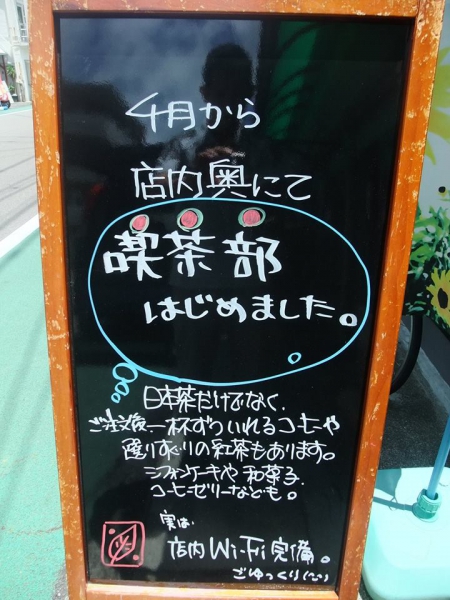 4月から
店内奥にて
喫茶部
はじめました。
日本茶だけでなく、
ご注文後、一杯ずついれるコーヒーや
選りすぐりの紅茶もあります。
シフォンケーキや和菓子、
コーヒーゼリーなども。
実は、
店内Wi-Fi完備。
ごゆっくり(^^)